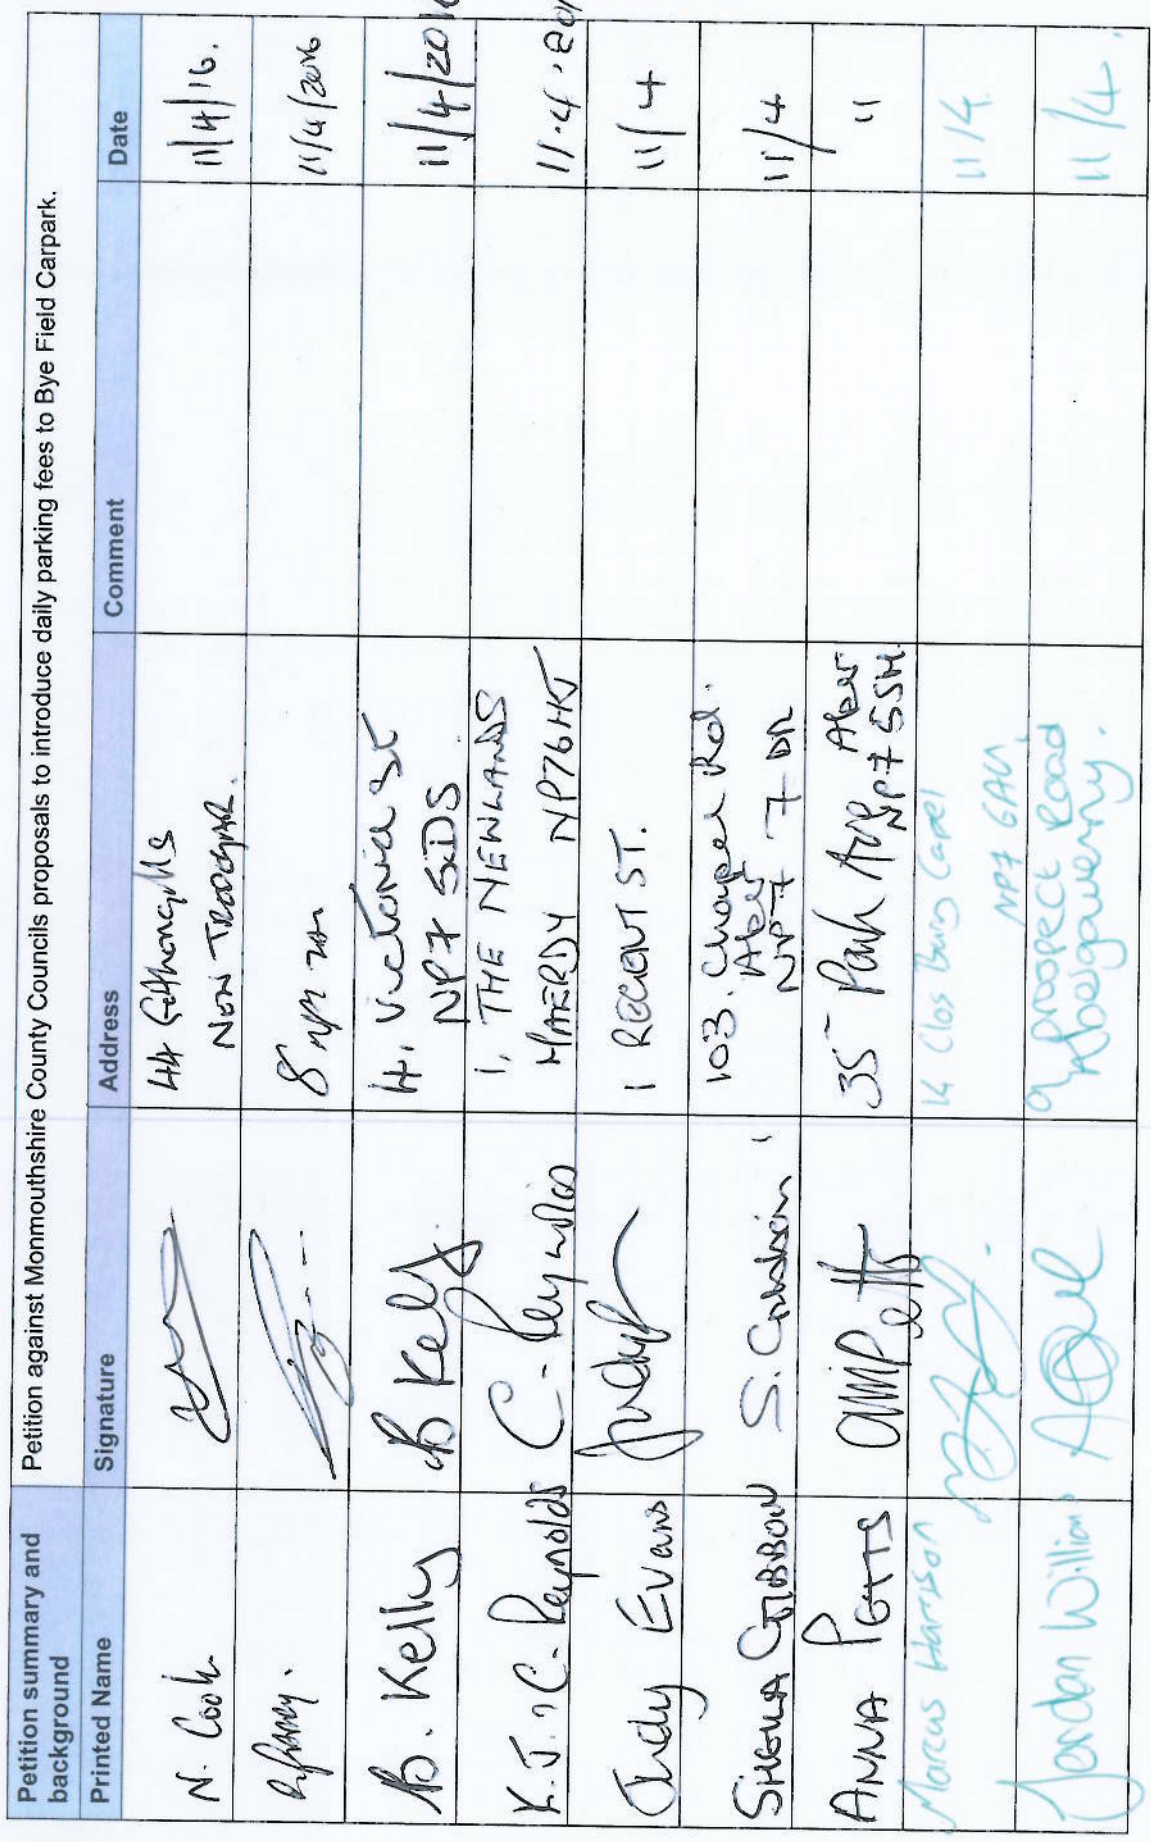 Petition summary and background
Petition against Monmouthshire County Councils proposals to introduce daily parking fees to Bye Field Carpark.
Printed Name Signature Address Comment Date
N. Cook 44 11/4/16.
8 11/4/2016
B. Kelly B Kelly 4, Victoria St
NP7 5DS 11/4/2016
K.J. C. Reynolds C. Reynolds 1, THE NEWLANDS
MAERDY NP7 6HS 11.4.201
Judy Evans 1 REGENT ST. 11/4
SHEILA GIBBON 103. Chapel Rd.
Aber
NP7 7DR 11/4
ANNA PETTS AMPetts 35 Park Ave Aber
NP7 5SH. "
Marcus Harrison 14 Clos Capel
NP7 11/4
Jordan William 9 prospect Road
Abergavenny. 11/4.